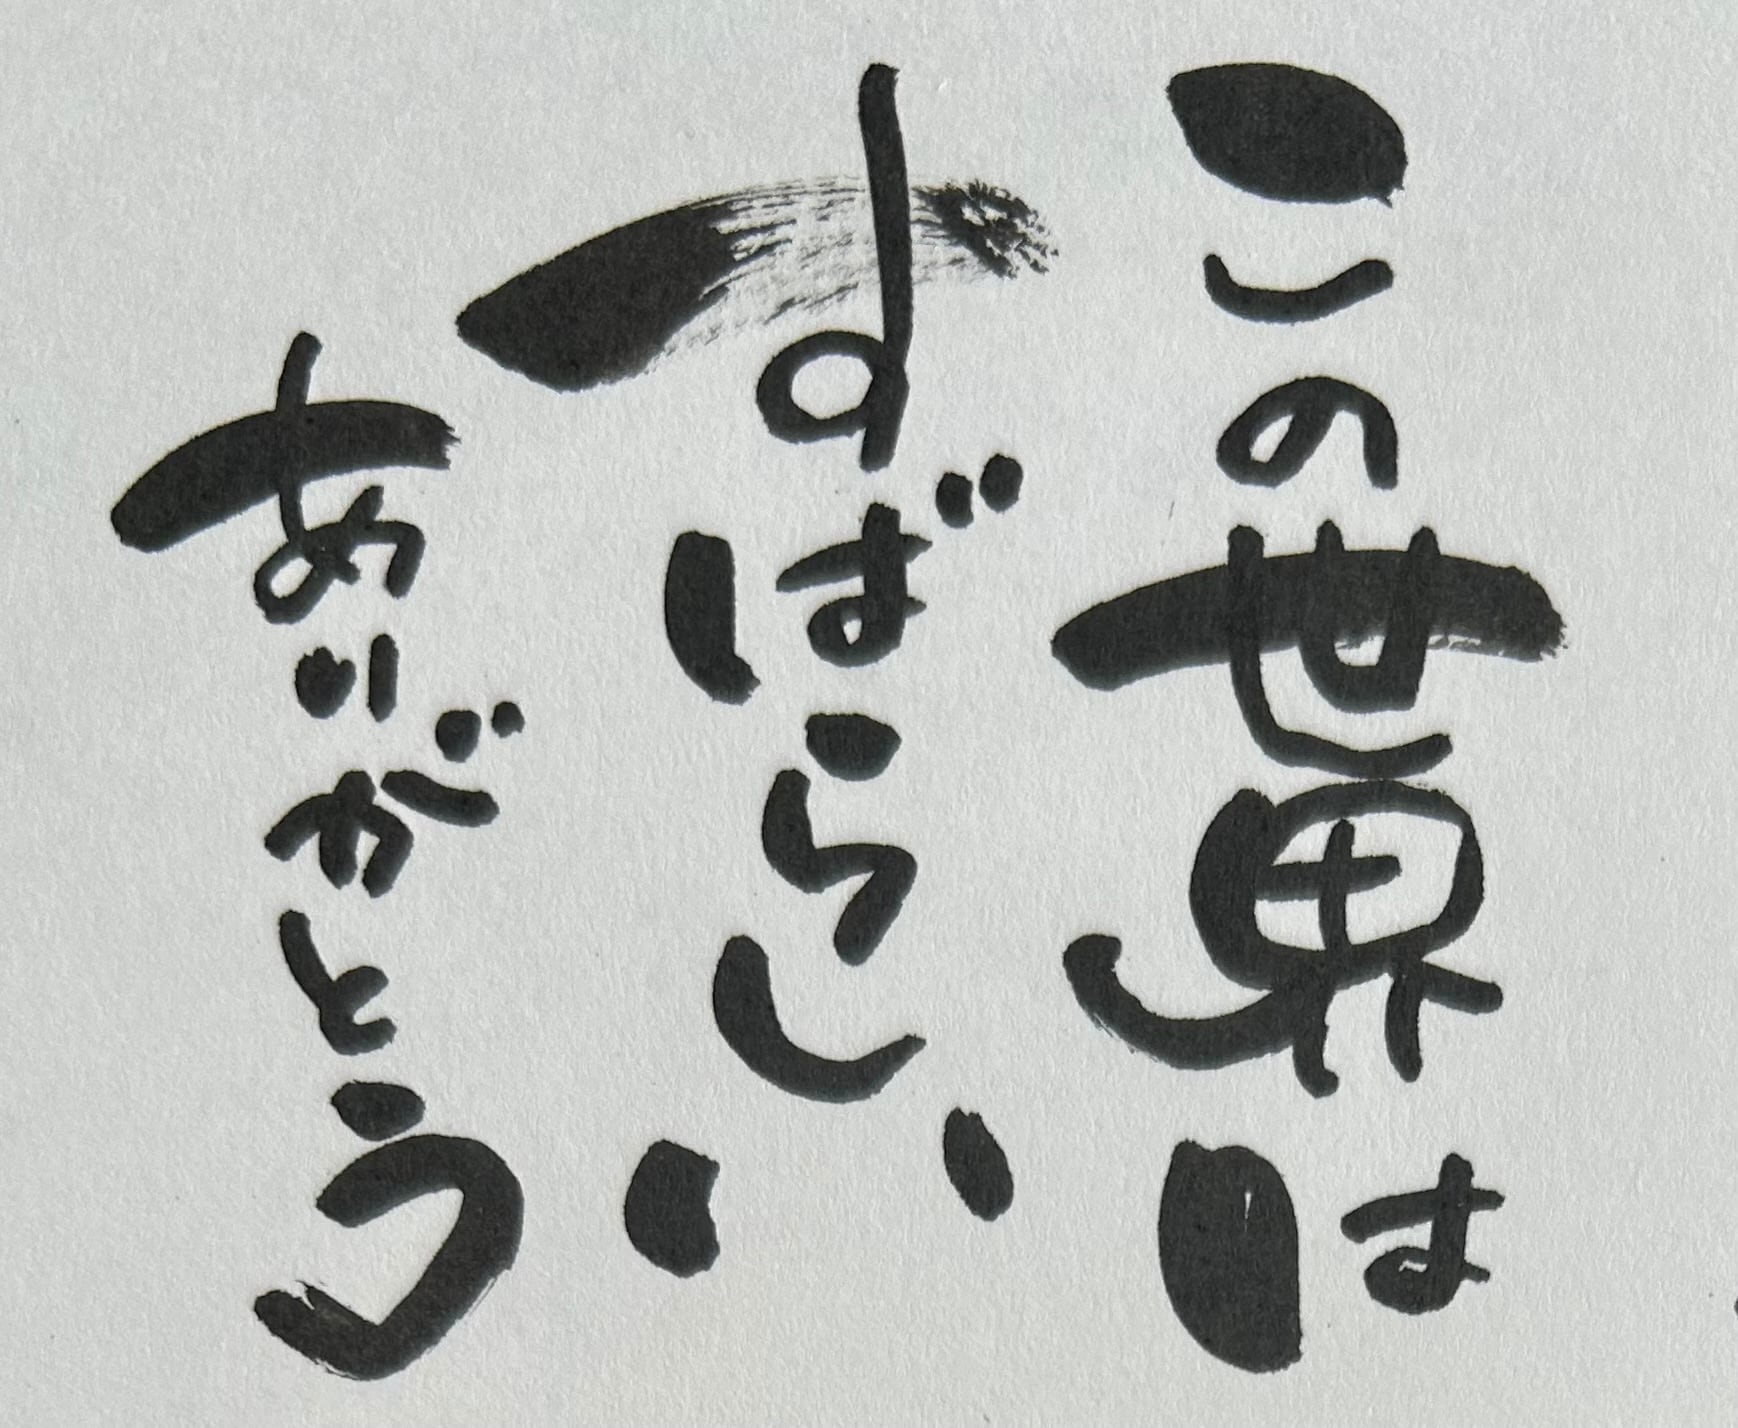 この世界は
すばらしい
ありがとう